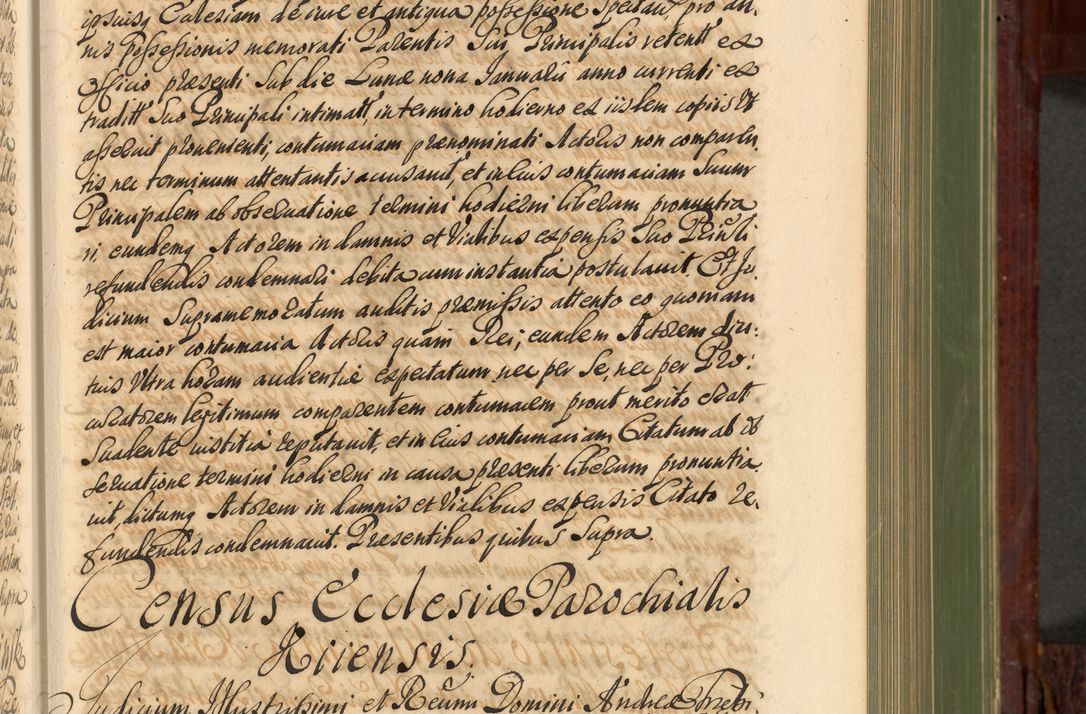 ipsusq Ecclesiam de iure et antiqua possessione spectan, pro an,
nis Possessionis memorati Parentis Sui Principalis retent ex
Officio præsenti sub die Lunæ nona Januarii anno currenti ex
tradit suo Principali intimatt, in termino hodierno ex iisdem copiis ut
asseruit provenienti, contumaciam prænominati Actoris non comparen
tis nec terminum attentantis accusavit, et in eius contumaciam Suum
Principalem ab observatione termini hodierni liberum pronuntia
ri, eundemq Actorem in damnis et litalibus expensis Suo Prinli
refundendis condemnari debita cum instantia postulavit. Et Ju,
dicium Supramemoratum auditis præmissis attento eo quoniam
est maior contumacia Actoris quam Rei; eundem Actorem diu:
tius Ultra horam audientiæ expectatum, nec per Se, nec per Pro:
curatorem legitimum comparentem contumacem prout merito erat
Suadente iustitia reputavit, et in Eius contumaciam Citatum ab ob
servatione termini hodierni in causa præsenti liberum pronuntia.
vit, dictumq Actorem in damnis et litalibus expensis Citato re,
fundendis condemnavit. Præsentibus quibus Supra.
Census Ecclesiæ Parochialis
Kiiensis.
Judicium Illustrissimi et Reũmi Domini Andreæ Trzebi,